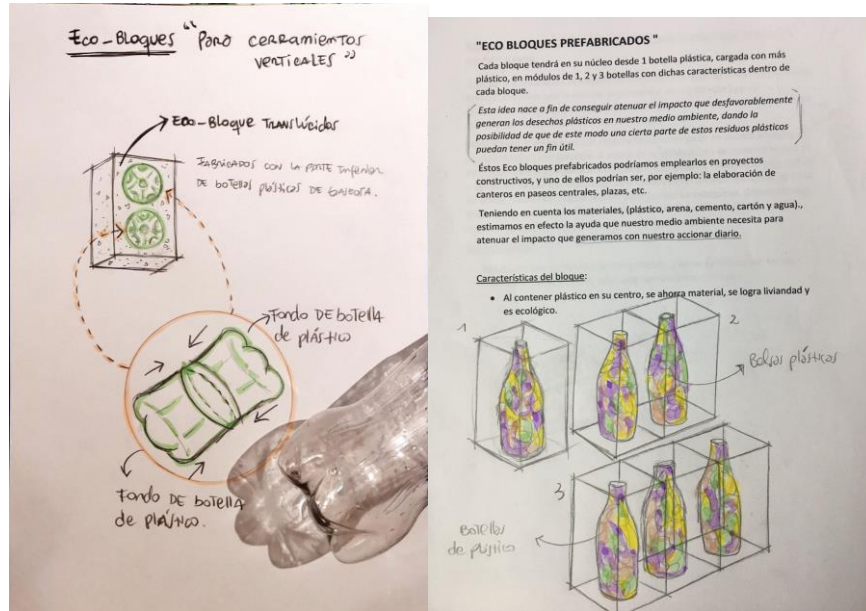 Eco-Bloques "Para cerramientos
verticales"
Eco-Bloque Translúcidos
Fabricados con la parte inferior
de botellas plásticas de gaseosa.
Fondo de botella
de plástico
Fondo de botella
de plástico.
"ECO BLOQUES PREFABRICADOS "
Cada bloque tendrá en su núcleo desde 1 botella plástica, cargada con más
plástico, en módulos de 1, 2 y 3 botellas con dichas características dentro de
cada bloque.
Esta idea nace a fin de conseguir atenuar el impacto que desfavorablemente
generan los desechos plásticos en nuestro medio ambiente, dando la
posibilidad de que de este modo una cierta parte de estos residuos plásticos
puedan tener un fin útil.
Éstos Eco bloques prefabricados podríamos emplearlos en proyectos
constructivos, y uno de ellos podrían ser, por ejemplo: la elaboración de
canteros en paseos centrales, plazas, etc.
Teniendo en cuenta los materiales, (plástico, arena, cemento, cartón y agua).,
estimamos en efecto la ayuda que nuestro medio ambiente necesita para
atenuar el impacto que generamos con nuestro accionar diario.
Características del bloque:
• Al contener plástico en su centro, se ahorra material, se logra liviandad y
es ecológico.
1
2
Bolsas plásticas
3
Botellas
de plástico